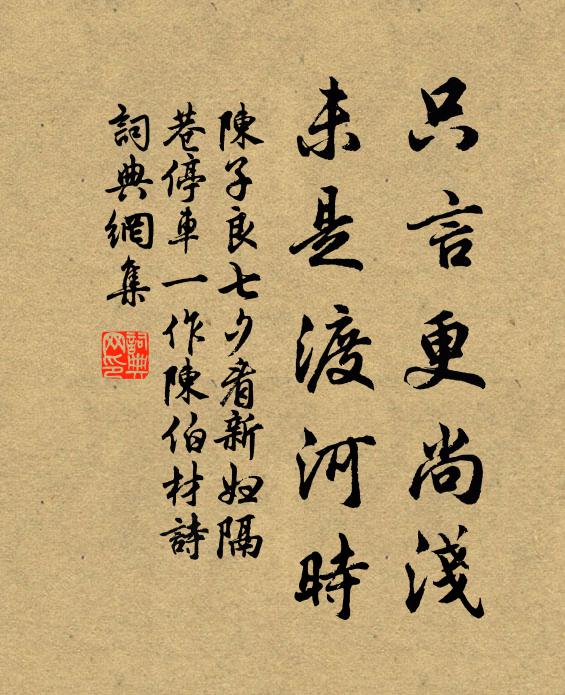 只言更尚淺
未是渡河時
陳子良七夕看新婦隔
巷停車一作陳伯材詩
詞典網集
詞典网印